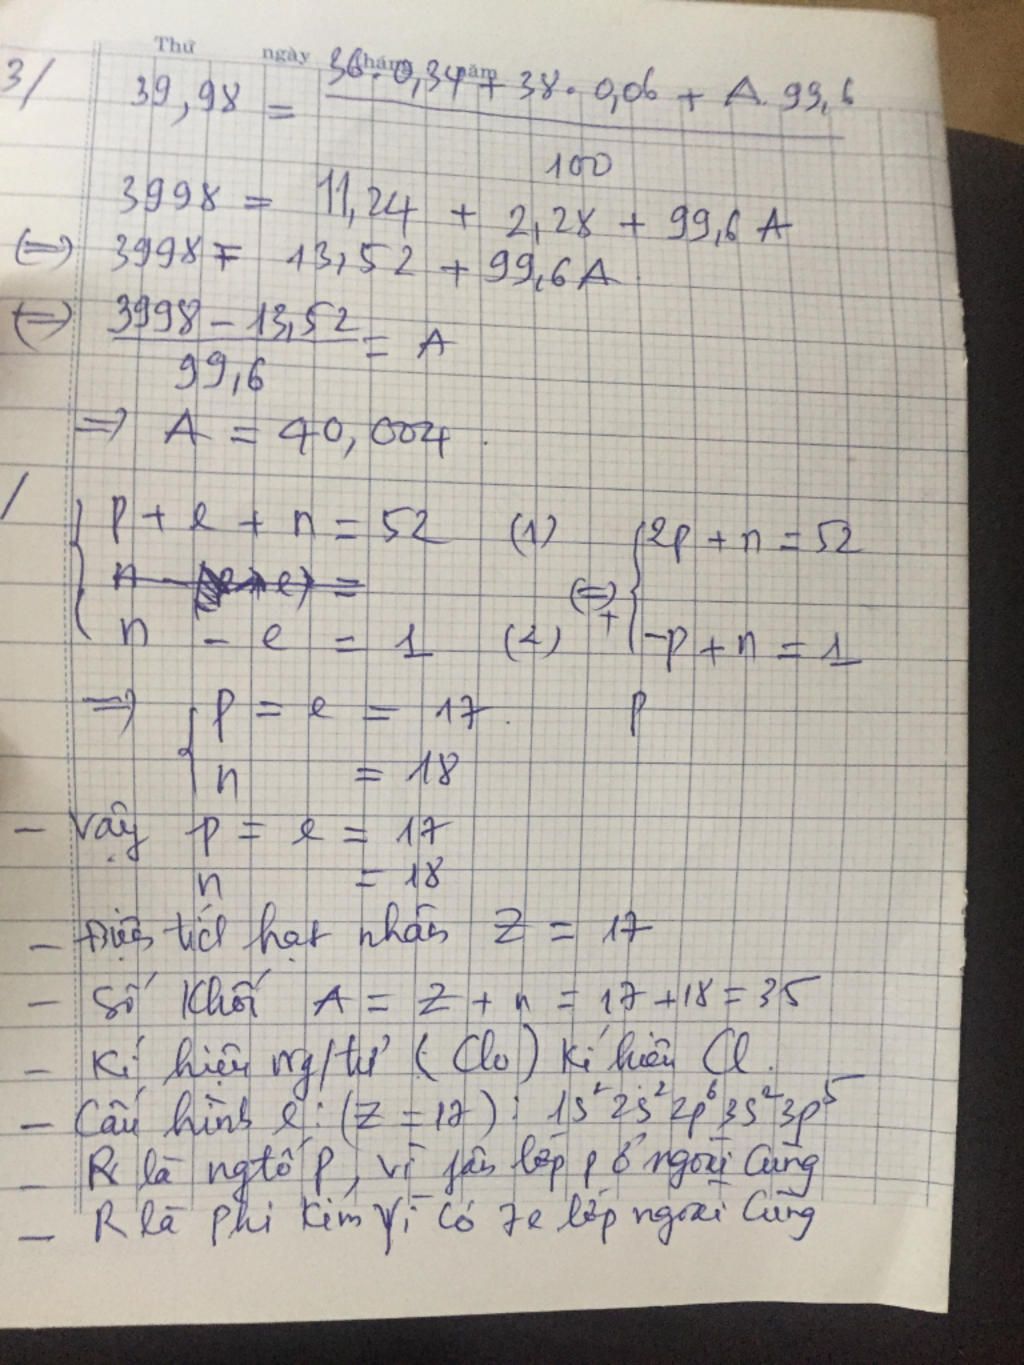 Thứ ngày tháng năm
3/ 39,98 = (36. 0,34 + 38. 0,06 + A. 99,6) / 100
3998 = 11,24 + 2,28 + 99,6 A
(=) 3998 = 13,52 + 99,6 A
(=) (3998 - 13,52) / 99,6 = A
=> A = 40,004.
/ { p + e + n = 52 (1) { 2p + n = 52
n - =
(=) +
n - e = 1 (2) -p + n = 1
=> { p = e = 17. p
n = 18
- Vậy p = e = 17
n = 18
- Điện tích hạt nhân Z = 17
- Số khối A = Z + n = 17 + 18 = 35
- Kí hiệu ng/tử (Clo) kí hiệu Cl.
- Cấu hình e: (Z = 17): 1s² 2s² 2p⁶ 3s² 3p⁵
- R là ngtố p, vì lớp p ở ngoài cùng
- R là phi kim vì có 7e lớp ngoài cùng